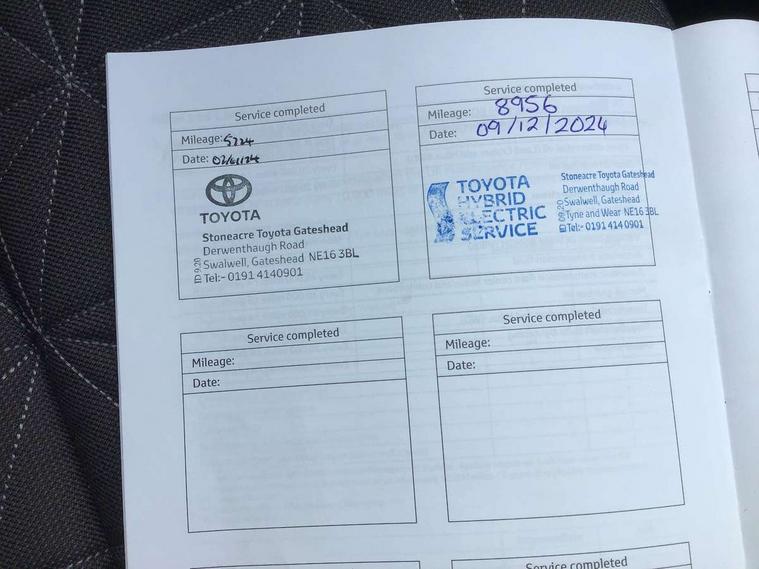 Service completed
Mileage: 5224
Date:
TOYOTA
Stoneacre Toyota Gateshead
Derwenthaugh Road
Swalwell, Gateshead NE16 3BL
Tel:- 0191 4140901
Service completed
Mileage: 8956
Date: 09/12/2024
TOYOTA
HYBRID
ELECTRIC
SERVICE
Stoneacre Toyota Gateshead
Derwenthaugh Road
Swalwell, Gateshead
Tyne and Wear NE16 3BL
Tel:- 0191 414 0901
Service completed
Mileage:
Date:
Service completed
Mileage:
Date:
Service completed